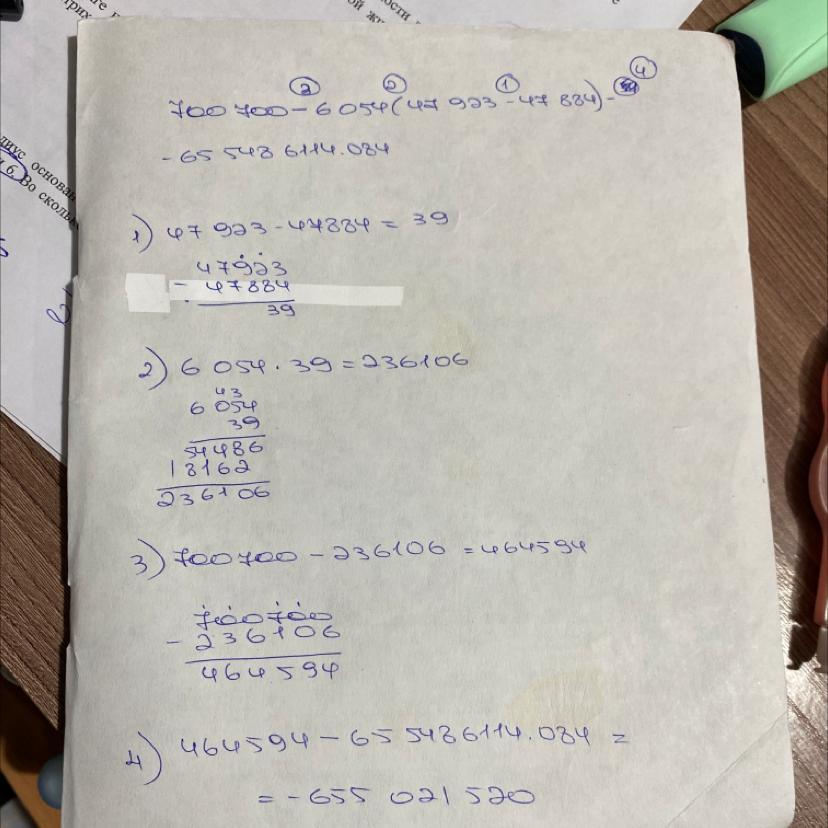 700 700 - 6 054 (47 923 - 47 884) -
- 65 548 6114.084
1) 47 923 - 47884 = 39
47923
- 47884
39
2) 6 054 · 39 = 236106
43
6 054
39
54486
18162
236106
3) 700700 - 236106 = 464594
700700
- 236106
464594
4) 464594 - 655486114.084 =
= - 655 021 520